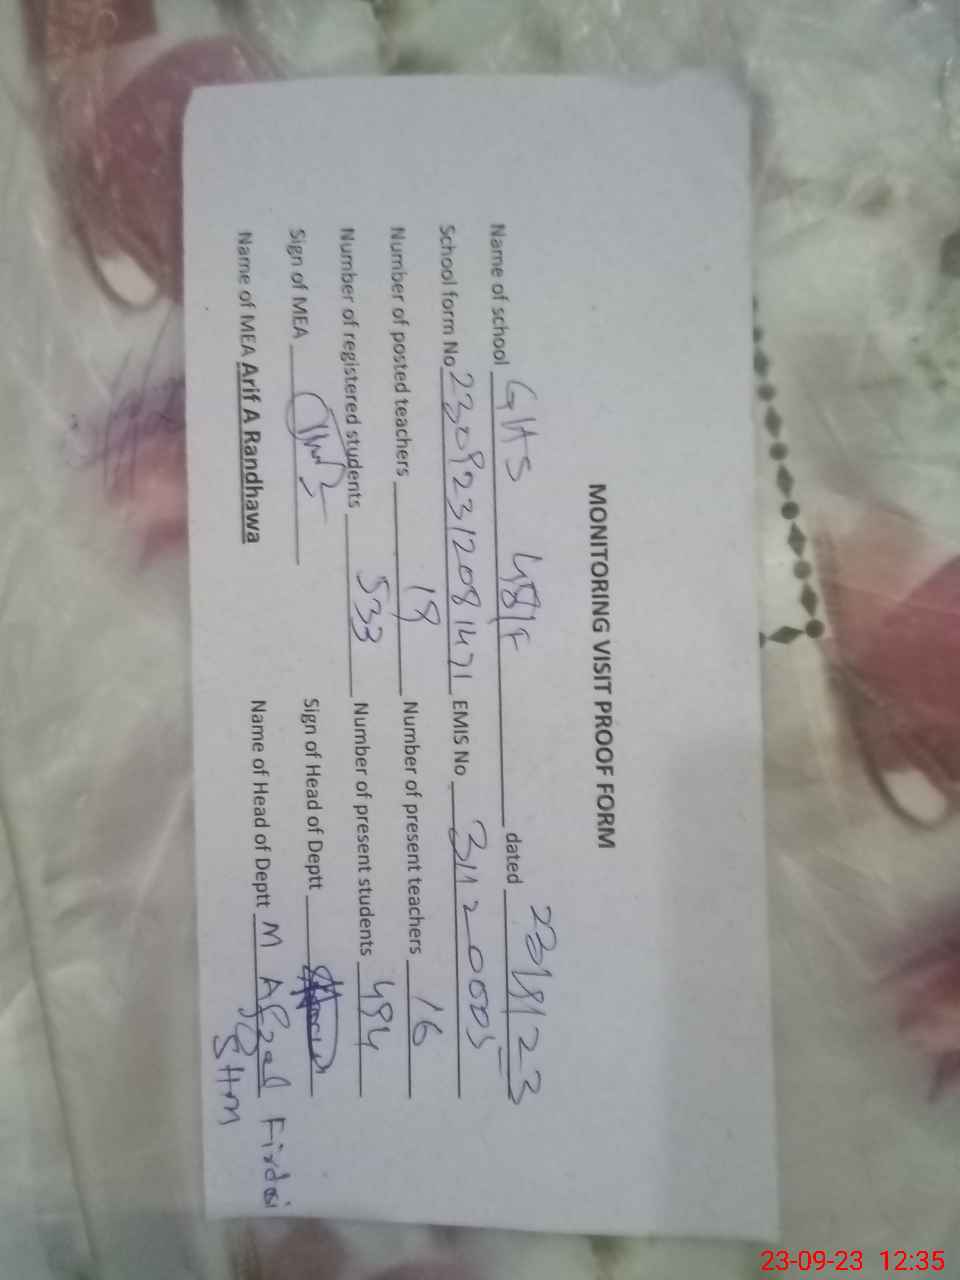 MONITORING VISIT PROOF FORM
Name of school GHS 48/F dated 23/9/23
School form No 23092312081471 EMIS No 31120005
Number of posted teachers 19 Number of present teachers 16
Number of registered students 533 Number of present students 494
Sign of MEA Sign of Head of Deptt
Name of MEA Arif A Randhawa Name of Head of Deptt M Afzal Firdosi
SHM
23-09-23 12:35